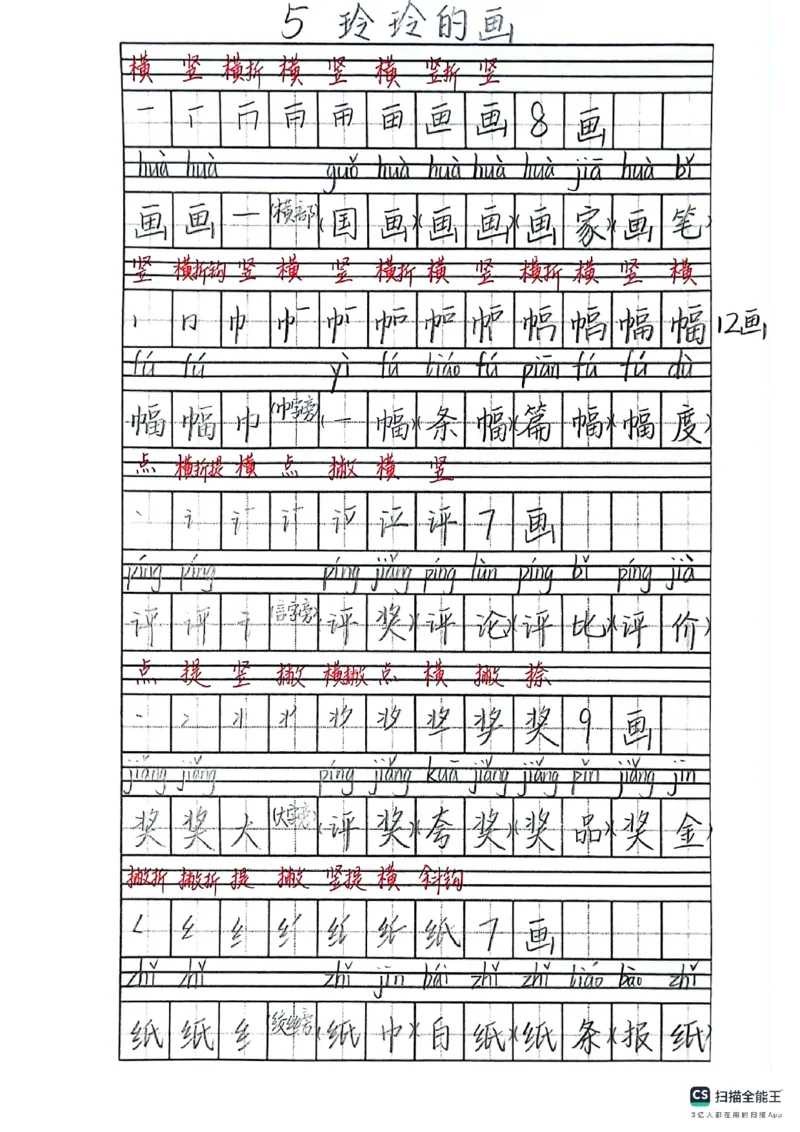 5 玲玲的画
横 竖 横折 横 竖 横 竖折 竖
8 画
huà huà guǒ huà huà huà huà jiā huà bǐ
画 画 一 (横部) (国 画)(画 画)(画 家)(画 笔)
竖 横折钩 竖 横 竖 横折 横 竖 横折 横 竖 横
巾 幅 12画
fú fú yì fú tiáo fú piān fú fú dù
幅 幅 巾 (巾字旁) (一 幅)(条 幅)(篇 幅)(幅 度)
点 横折提 横 点 撇 横 竖
评 7 画
píng píng píng jiǎng píng lùn píng bǐ píng jià
评 评 讠 (言字旁) (评 奖)(评 论)(评 比)(评 价)
点 提 竖 撇 横撇 点 横 撇 捺
奖 9 画
jiǎng jiǎng píng jiǎng kuā jiǎng jiǎng pǐn jiǎng jīn
奖 奖 大 (大字旁) (评 奖)(夸 奖)(奖 品)(奖 金)
撇折 撇折 提 撇 竖提 横 斜钩
纸 7 画
zhǐ zhǐ zhǐ jīn bái zhǐ zhǐ tiáo bào zhǐ
纸 纸 纟 (绞丝旁) (纸 巾)(白 纸)(纸 条)(报 纸)
CS 扫描全能王
3亿人都在用的扫描App